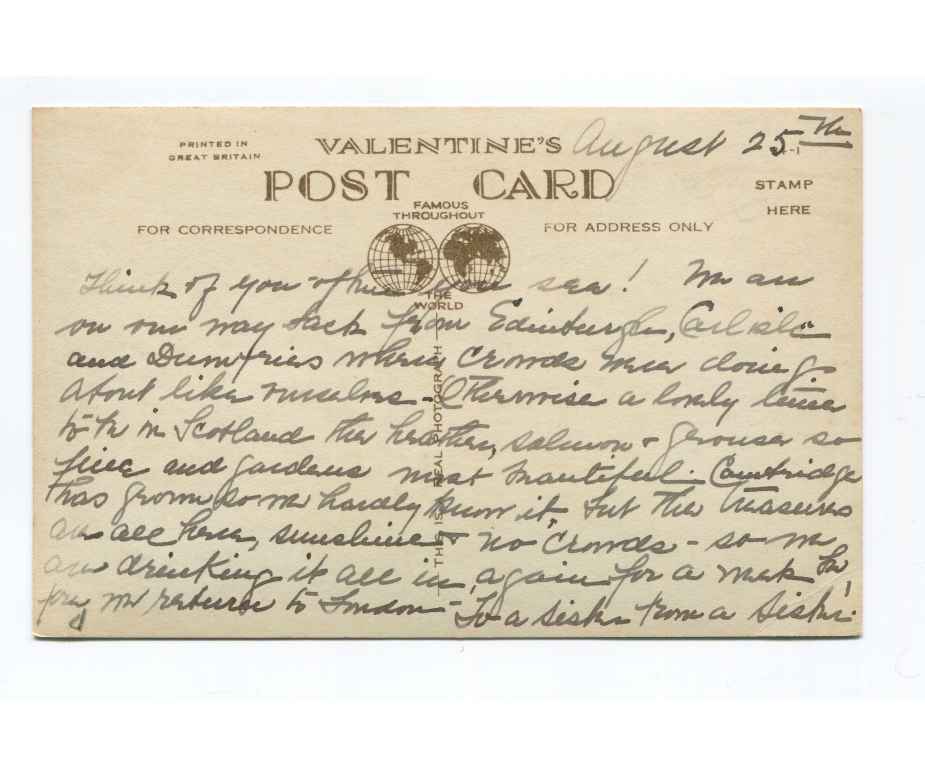 PRINTED IN
GREAT BRITAIN
VALENTINE'S
August 25th
POST CARD
STAMP
HERE
FAMOUS
THROUGHOUT
THE
WORLD
FOR CORRESPONDENCE
FOR ADDRESS ONLY
THIS IS A REAL PHOTOGRAPH
Think of you often you see! We are
on our way back from Edinburgh, Carlisle
and Dumfries where crowds were doing
about like ourselves - Otherwise a lovely time
to be in Scotland the heather, salmon & grouse so
fine and gardens most beautiful - Cambridge
has grown so we hardly know it, but the treasures
are all here, sunshine & no crowds - so we
are drinking it all in again for a week be
fore we return to London - To a sister from a sister.